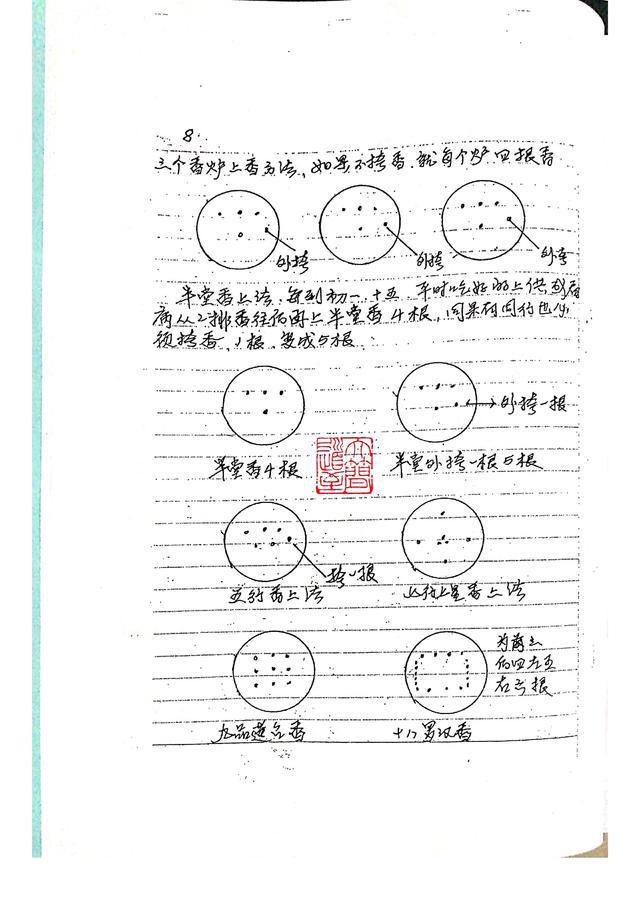 8.
三个香炉上香方法,如果不挎香.就每个炉四根香
外挎
外挎
外挎
半堂香上法.每到初一.十五.平时吃好的上供或有
病从2排香往前再上半堂香4根,同来有回的也必
须挎香.1根.变成5根
外挎一根
半堂香4根
半堂外挎一根5根
挎1根
五行香上法
星香上法
为前三
后四左五
右六根
九品莲台香
十八罗汉香